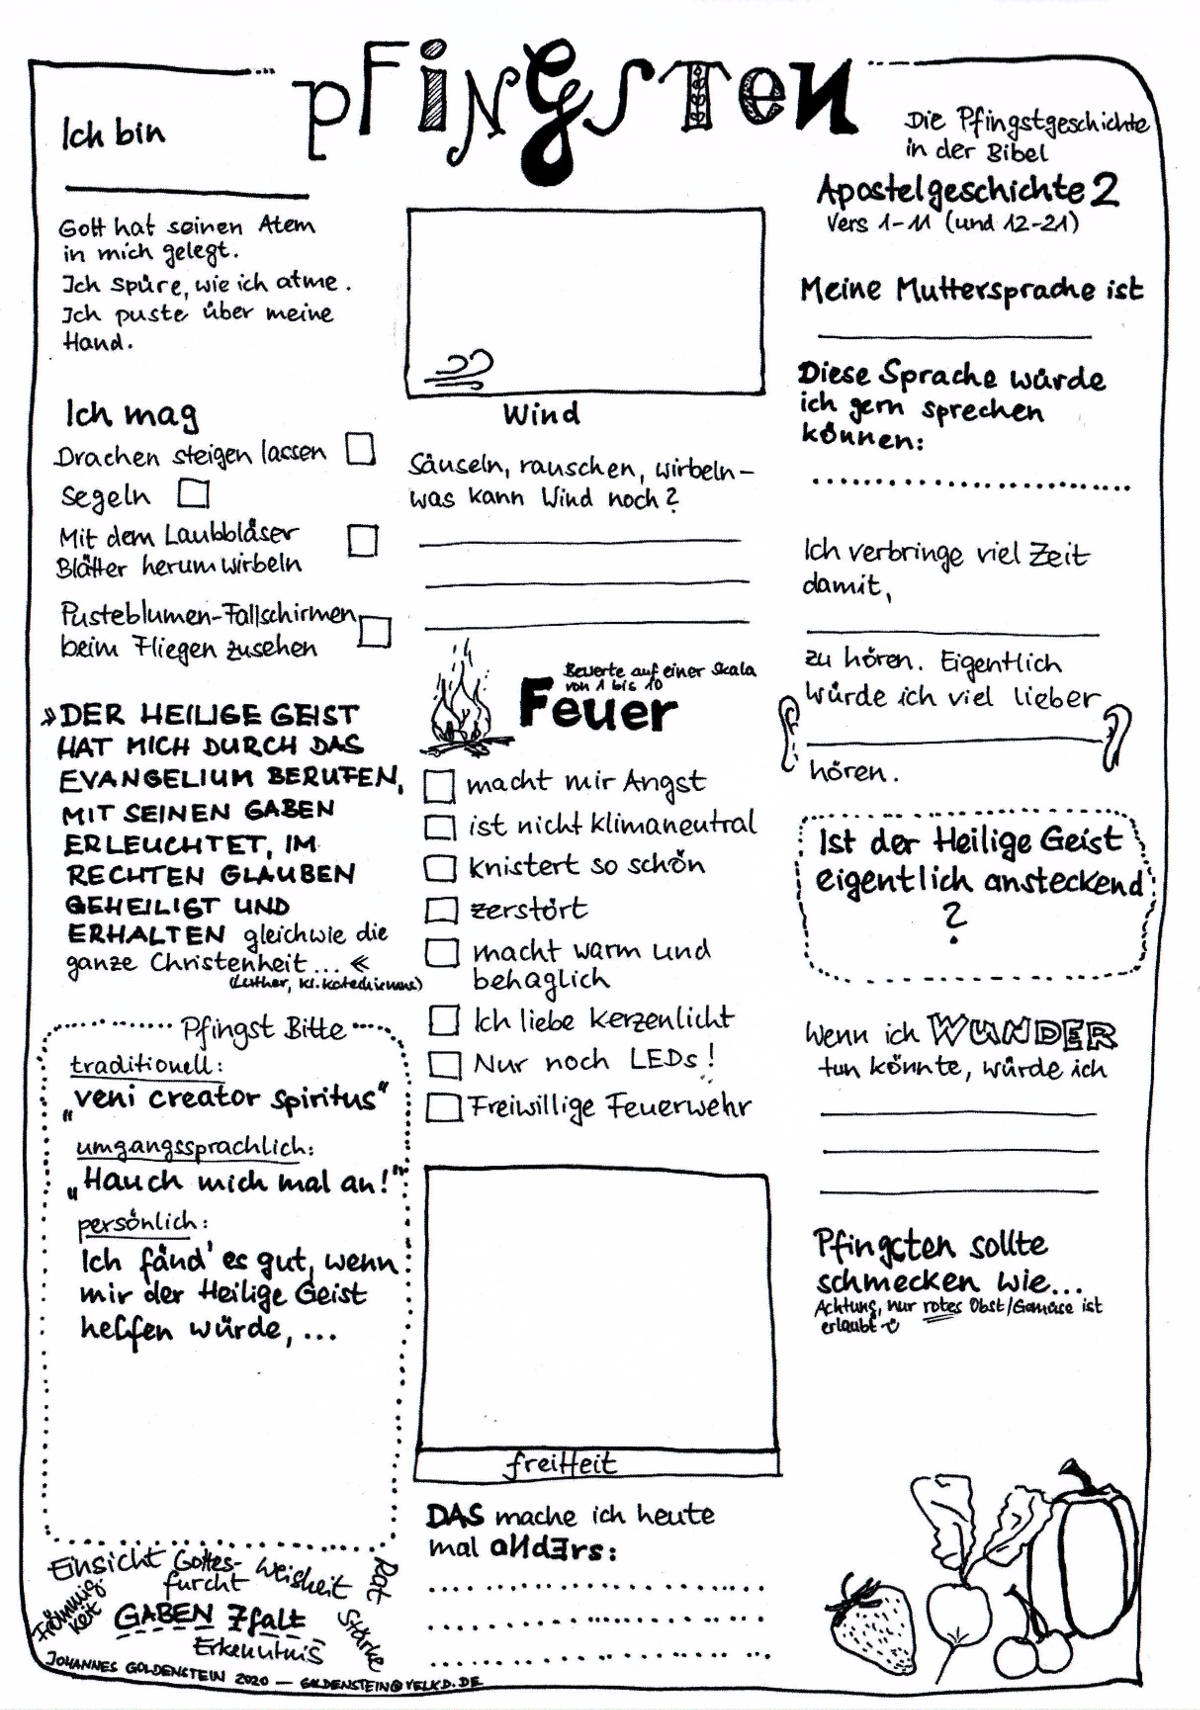 Pfingsten
Ich bin
Gott hat seinen Atem
in mich gelegt.
Ich spüre, wie ich atme.
Ich puste über meine
Hand.
Ich mag
Drachen steigen lassen
Segeln
Mit dem Laubbläser
Blätter herumwirbeln
Pusteblumen-Fallschirmen
beim Fliegen zusehen
»DER HEILIGE GEIST
HAT MICH DURCH DAS
EVANGELIUM BERUFEN,
MIT SEINEN GABEN
ERLEUCHTET, IM
RECHTEN GLAUBEN
GEHEILIGT UND
ERHALTEN gleichwie die
ganze Christenheit... «
(Luther, Kl. Katechismus)
Pfingst Bitte
traditionell:
„veni creator spiritus“
umgangssprachlich:
„Hauch mich mal an!“
persönlich:
Ich fänd' es gut, wenn
mir der Heilige Geist
helfen würde, ...
Einsicht Gottes-
furcht Weisheit Rat
Frömmig-
keit
GABEN Zfalt
Stärke
Erkenntnis
JOHANNES GOLDENSTEIN 2020 — GOLDENSTEIN@VELKD.DE
Wind
Säuseln, rauschen, wirbeln –
was kann Wind noch?
Bewerte auf einer Skala
von 1 bis 10
Feuer
macht mir Angst
ist nicht klimaneutral
knistert so schön
zerstört
macht warm und
behaglich
Ich liebe Kerzenlicht
Nur noch LEDs!
Freiwillige Feuerwehr
freiHeit
DAS mache ich heute
mal anders:
Die Pfingstgeschichte
in der Bibel
Apostelgeschichte 2
Vers 1-11 (und 12-21)
Meine Muttersprache ist
Diese Sprache würde
ich gern sprechen
können:
Ich verbringe viel Zeit
damit,
zu hören. Eigentlich
würde ich viel lieber
hören.
Ist der Heilige Geist
eigentlich ansteckend
?
Wenn ich WUNDER
tun könnte, würde ich
Pfingsten sollte
schmecken wie...
Achtung, nur rotes Obst/Gemüse ist
erlaubt